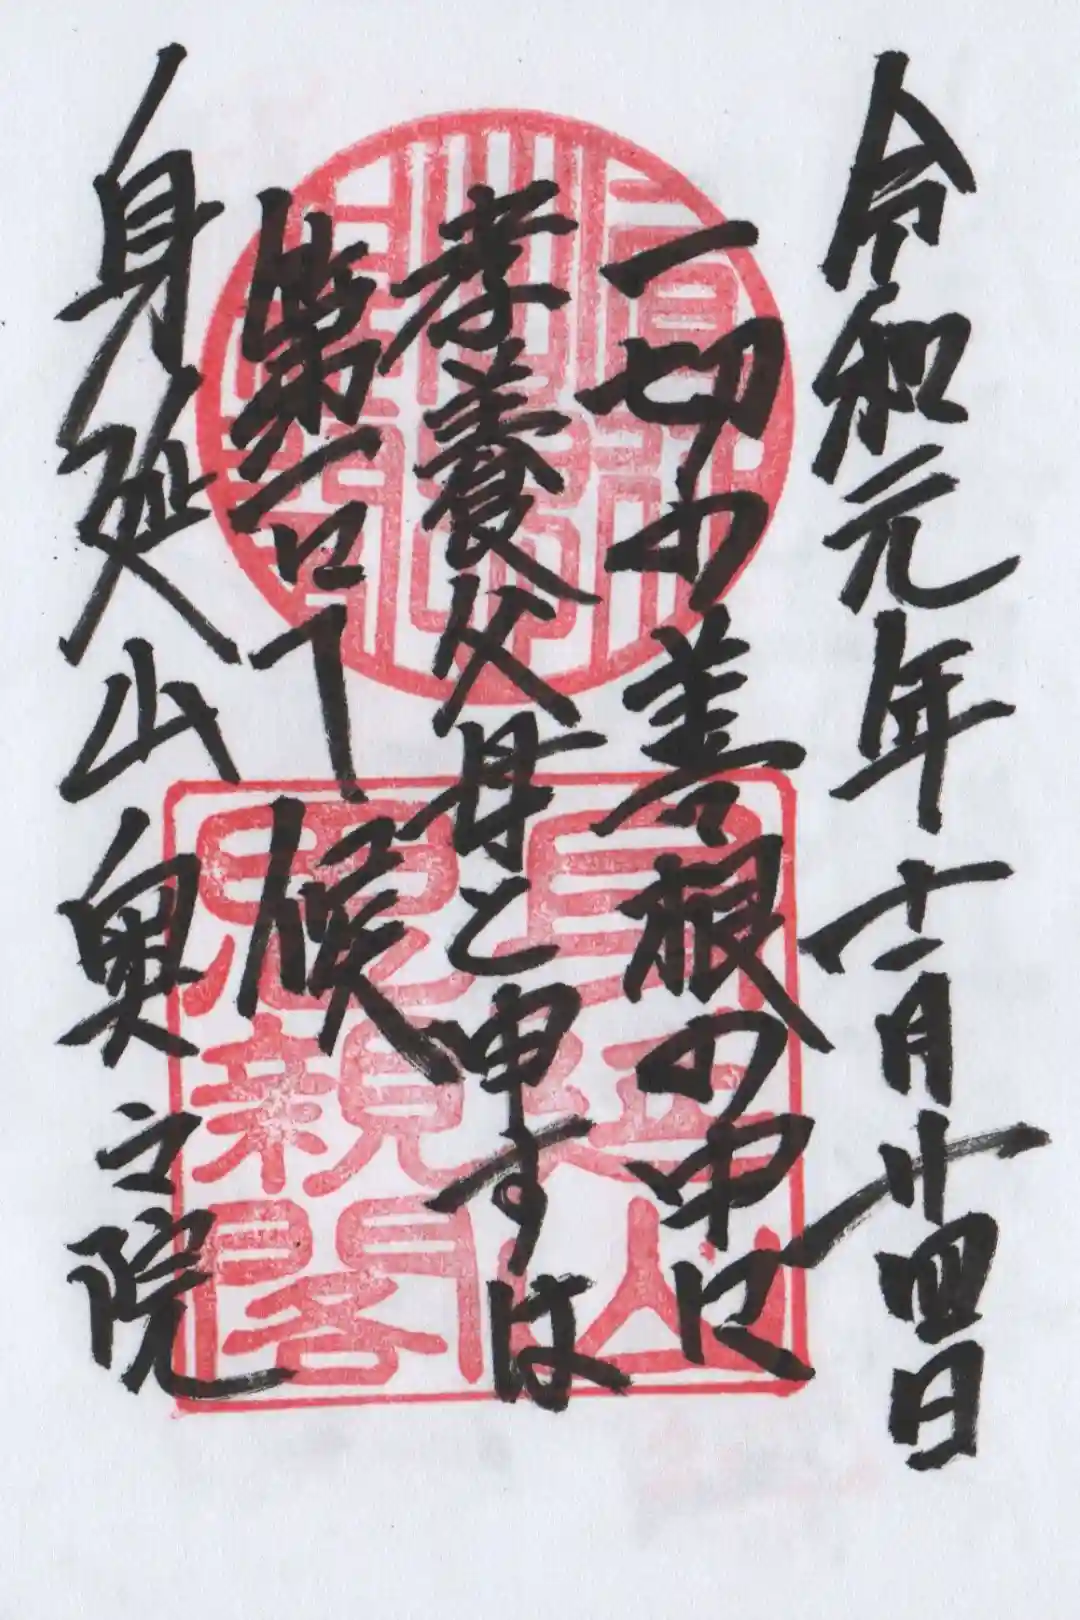 令和元年十一月廿四日
一切の善根の中に
孝養父母と申すは
第一にて候
身延山奥之院
身延山
思親閣